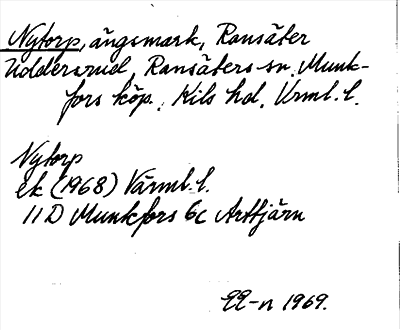 Nytorp, ängsmark, Ransäter
Uddersrud, Ransäters sn. Munk-
fors köp., Kils hd, Vrml. l.
Nytorp
ek (1968) Värml. l.
11D Munkfors 6c Arttjärn
1969.